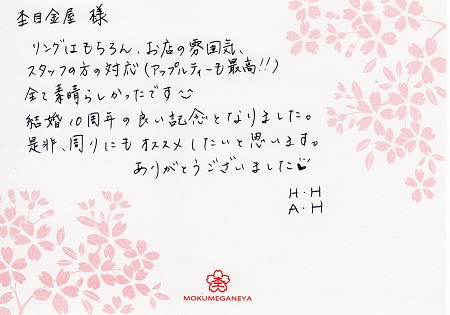 杢目金屋 様
リングはもちろん、お店の雰囲気、
スタッフの方の対応(アップルティーも最高!!)
全て素晴らしかったです
結婚10周年の良い記念となりました。
是非、周りにもオススメしたいと思います。
ありがとうございました
H・H
A・H
杢
MOKUMEGANEYA